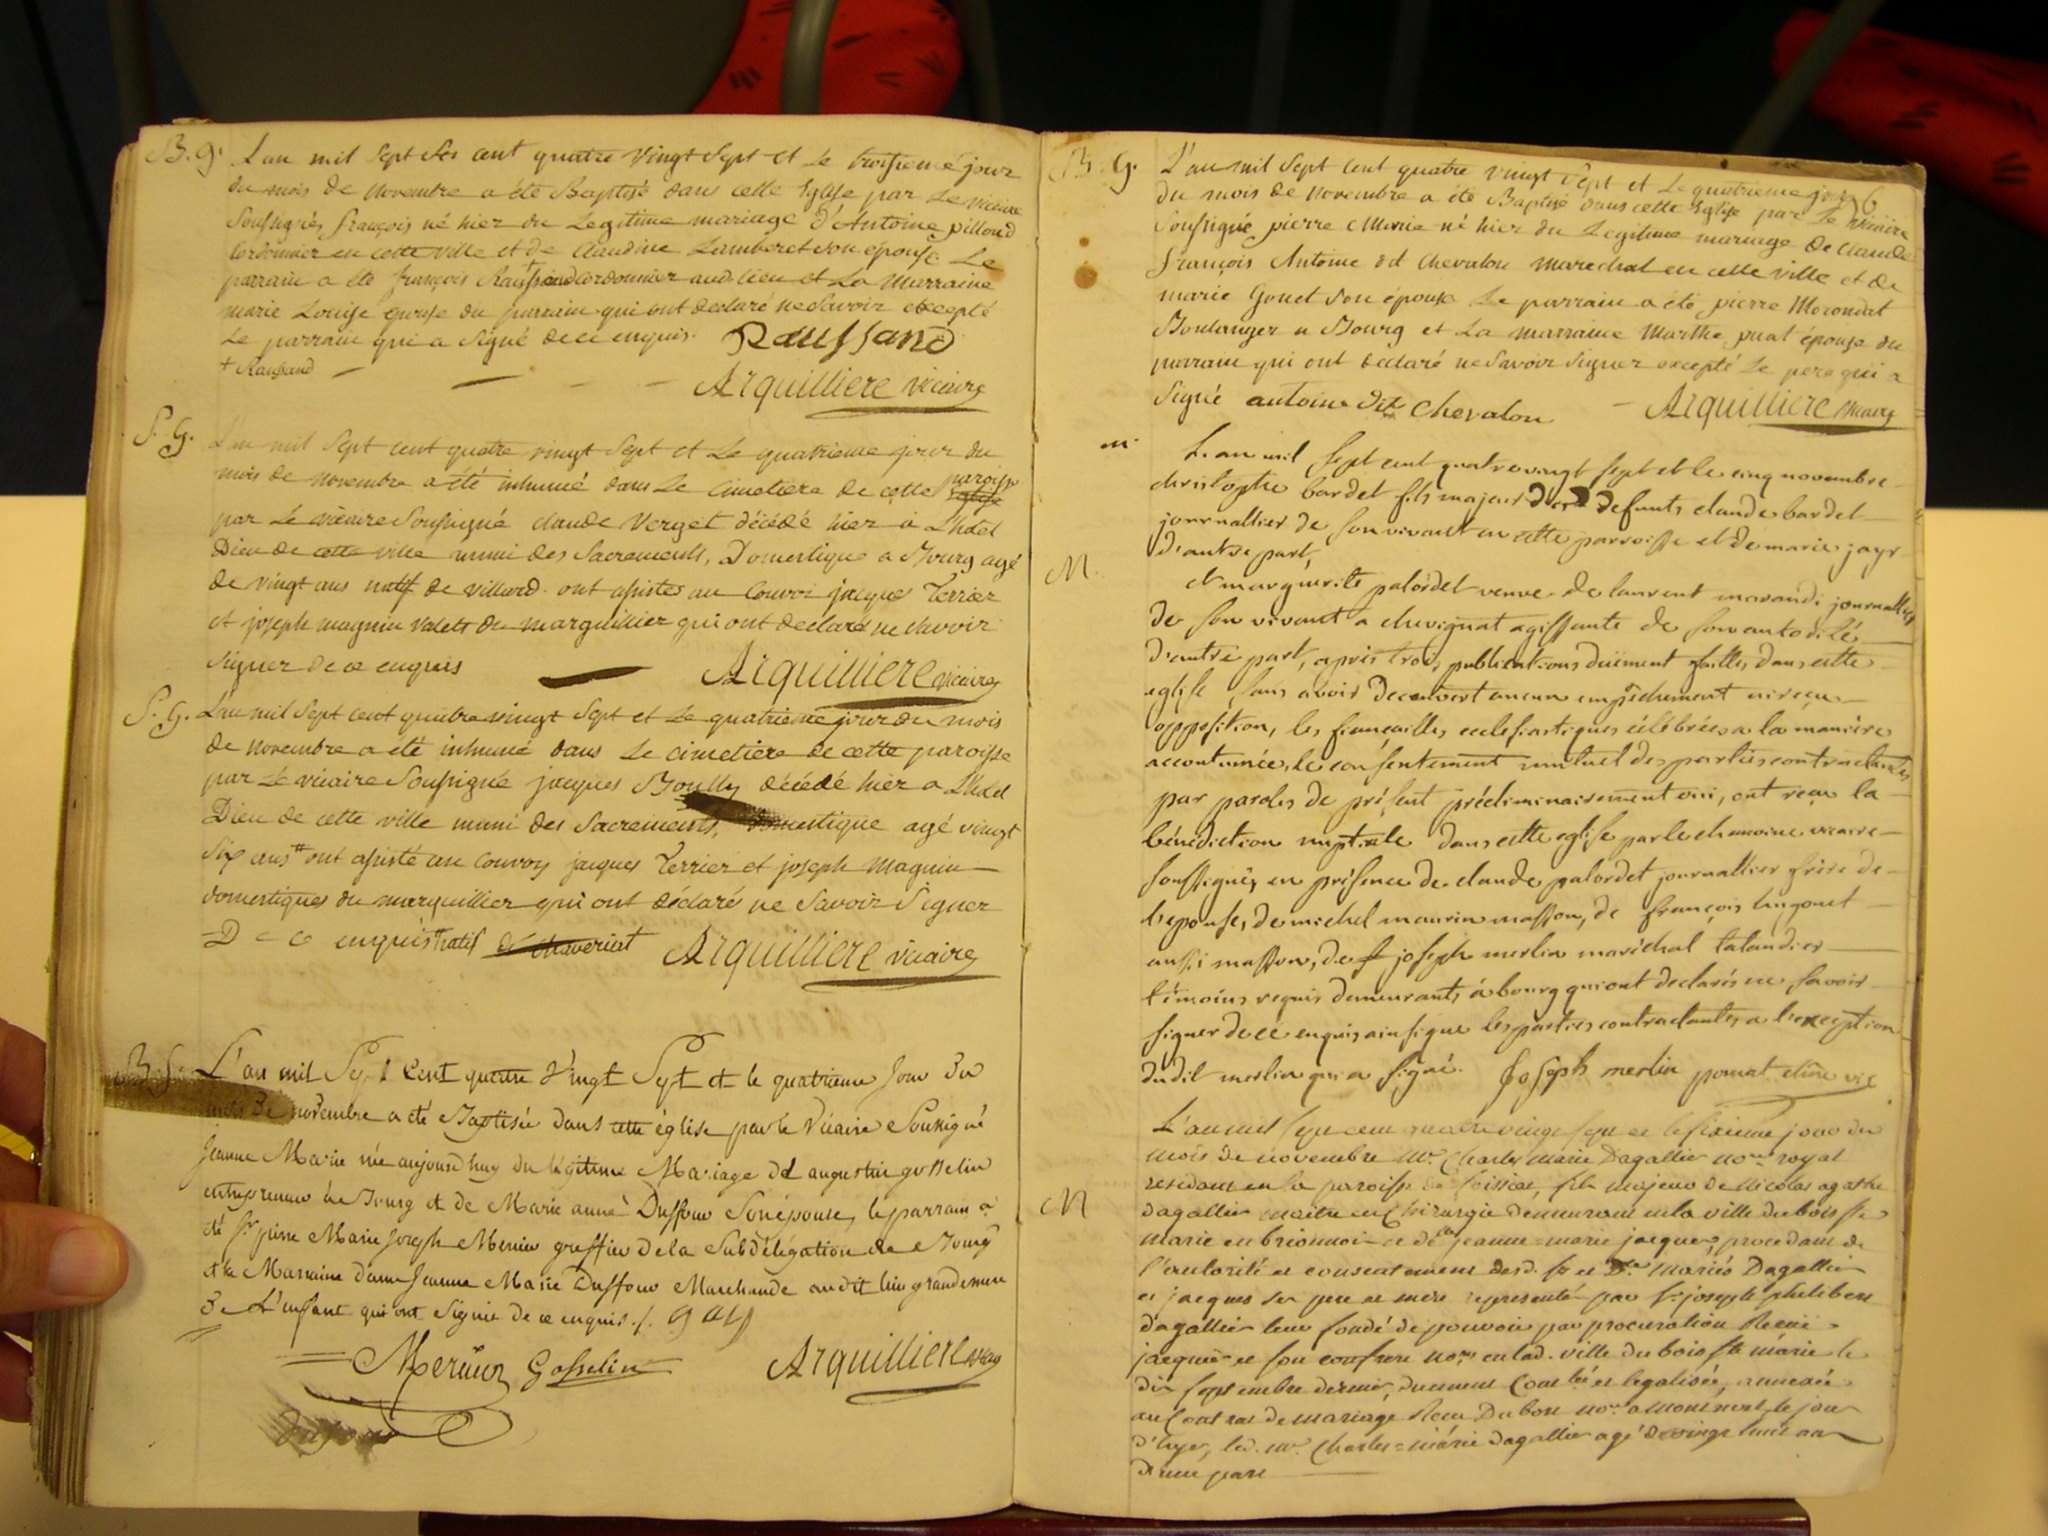 B. G. L'an mil Sept Ses cent quatre vingt Sept et Le troisieme jour
du mois de novembre a été Baptisé dans cette Eglise par Le vicaire
Soussigné, françois né hier du Legitime mariage d'Antoine pilloud
Cordonnier en cette ville et de Claudine Lamberet son épouse Le
parrain a été françois Raussand Cordonnier aud. lieu et La Marraine
marie Louise epouse du parrain qui ont declaré ne Savoir excepté
Le parrain qui a Signé de ce enquis. Raussand
+ Raussand
Arquilliere vicaire
S. G. L'an mil Sept cent quatre vingt Sept et Le quatrieme jour du
mois de novembre a été inhumé dans Le Cimetiere de cette paroisse
par Le vicaire Soussigné claude Verget décédé hier a L'hotel
Dieu de cette ville muni des Sacrements, Domestique a Bourg agé
de vingt ans natif de villard ont assisté au Convoi jacques Terrier
et joseph magnin valets du marguillier qui ont declaré ne Savoir
Signer de ce enquis Arquilliere vicaire
S. G. L'an mil Sept cent quatre vingt Sept et Le quatrieme jour du mois
de novembre a été inhumé dans Le Cimetiere de cette paroisse
par Le vicaire Soussigné jacques Boully décédé hier a L'hotel
Dieu de cette ville muni des Sacrements, domestique agé vingt
Six ans # ont assisté au Convoy jacques Terrier et joseph magnin
domestiques du marguillier qui ont déclaré ne Savoir Signer
De ce enquis # natif de chaveriat Arquilliere vicaire
B. G. L'an mil Sept Cent quatre Vingt Sept et le quatrieme Jour du
mois de novembre a été Baptisée dans cette église par le Vicaire Soussigné
Jeanne Marie née aujourd'huy du légitime Mariage d augustin gosselin
entrepreneur à Bourg et de Marie anne Duffour Son épouse, le parrain a
été Sr pierre Marie Joseph Mernier greffier de la Subdélégation de Bourg
et la Marraine dame Jeanne Marie Duffour Marchande audit lieu grandemere
De L'enfant qui ont Signé de ce enquis ./.
Gosselin Arquilliere vicaire
B. G. L'an mil Sept cent quatre vingt Sept et Le quatrieme jour
du mois de novembre a été Baptisé dans cette Eglise par Le vicaire
Soussigné pierre Marie né hier du Legitime mariage de claude
françois Antoine dit Chevalon Marechal en cette ville et de
marie Gonet Son épouse Le parrain a été pierre Morondat
Boulanger a Bourg et La marraine Marthe puat épouse du
parrain qui ont declaré ne Savoir Signer excepté Le pere qui a
Signé antoine dit Chevalon Arquilliere vicaire
M. L'an mil Sept cent quatre vingt sept et le cinq novembre
christophe bardet fils majeur des defunts claude bardet
journallier de son vivant en cette parroisse et de marie jayr
d'autre part,
M. et marguerite palordet veuve de laurent morandi journallier
de son vivant a chevignat agissante de son autorité
d'autre part, apres trois publications düement faittes dans cette
eglise sans avoir decouvert aucun empêchement ni reçeu
opposition, les fiançailles ecclesiastiques célébrées a la maniere
accoutumée, le consentement mutuel des parties contractantes
par paroles de présent préeliminairement oui, ont reçu la
bénédiction nuptiale dans cette eglise par le chanoine vicaire
soussigné, en présence de claude palordet journallier frere de
l'epouse, de michel maurin masson, de françois lingonet
aussi masson, de joseph merlin maréchal talandier
témoins requis demeurants à bourg qui ont declarés ne savoir
signer de ce enquis ainsi que les parties contractantes a l'exception
dudit merlin qui a signé. Joseph merlin
M L'an mil Sept cent quatre vingt sept et le sixieme jour du
mois de novembre Mr. Charles Marie Dagallier nore royal
residant en la paroisse de , fils majeur de Nicolas agathe
dagallier maitre en Chirurgie demeurant en la ville du bois Ste
marie en brionnois et de jeanne-marie jacquer, procedant de
l'autorité et consentement desd. Sr et De mariés Dagallier
et jacquer ses pere et mere representés par Sr joseph philibert
dagallier leur fondé de pouvoir par procuration Receüe
jacquier et son confrere nores en lad. ville du bois Ste marie le
dix septembre dernier, duement Conllée et legalisée, annexée
au Contrat de mariage Recu Dubost nore a montmerle le jour
d'hyer, led. Mr. Charles-marie dagallier agé de vingt huit ans
d'une part